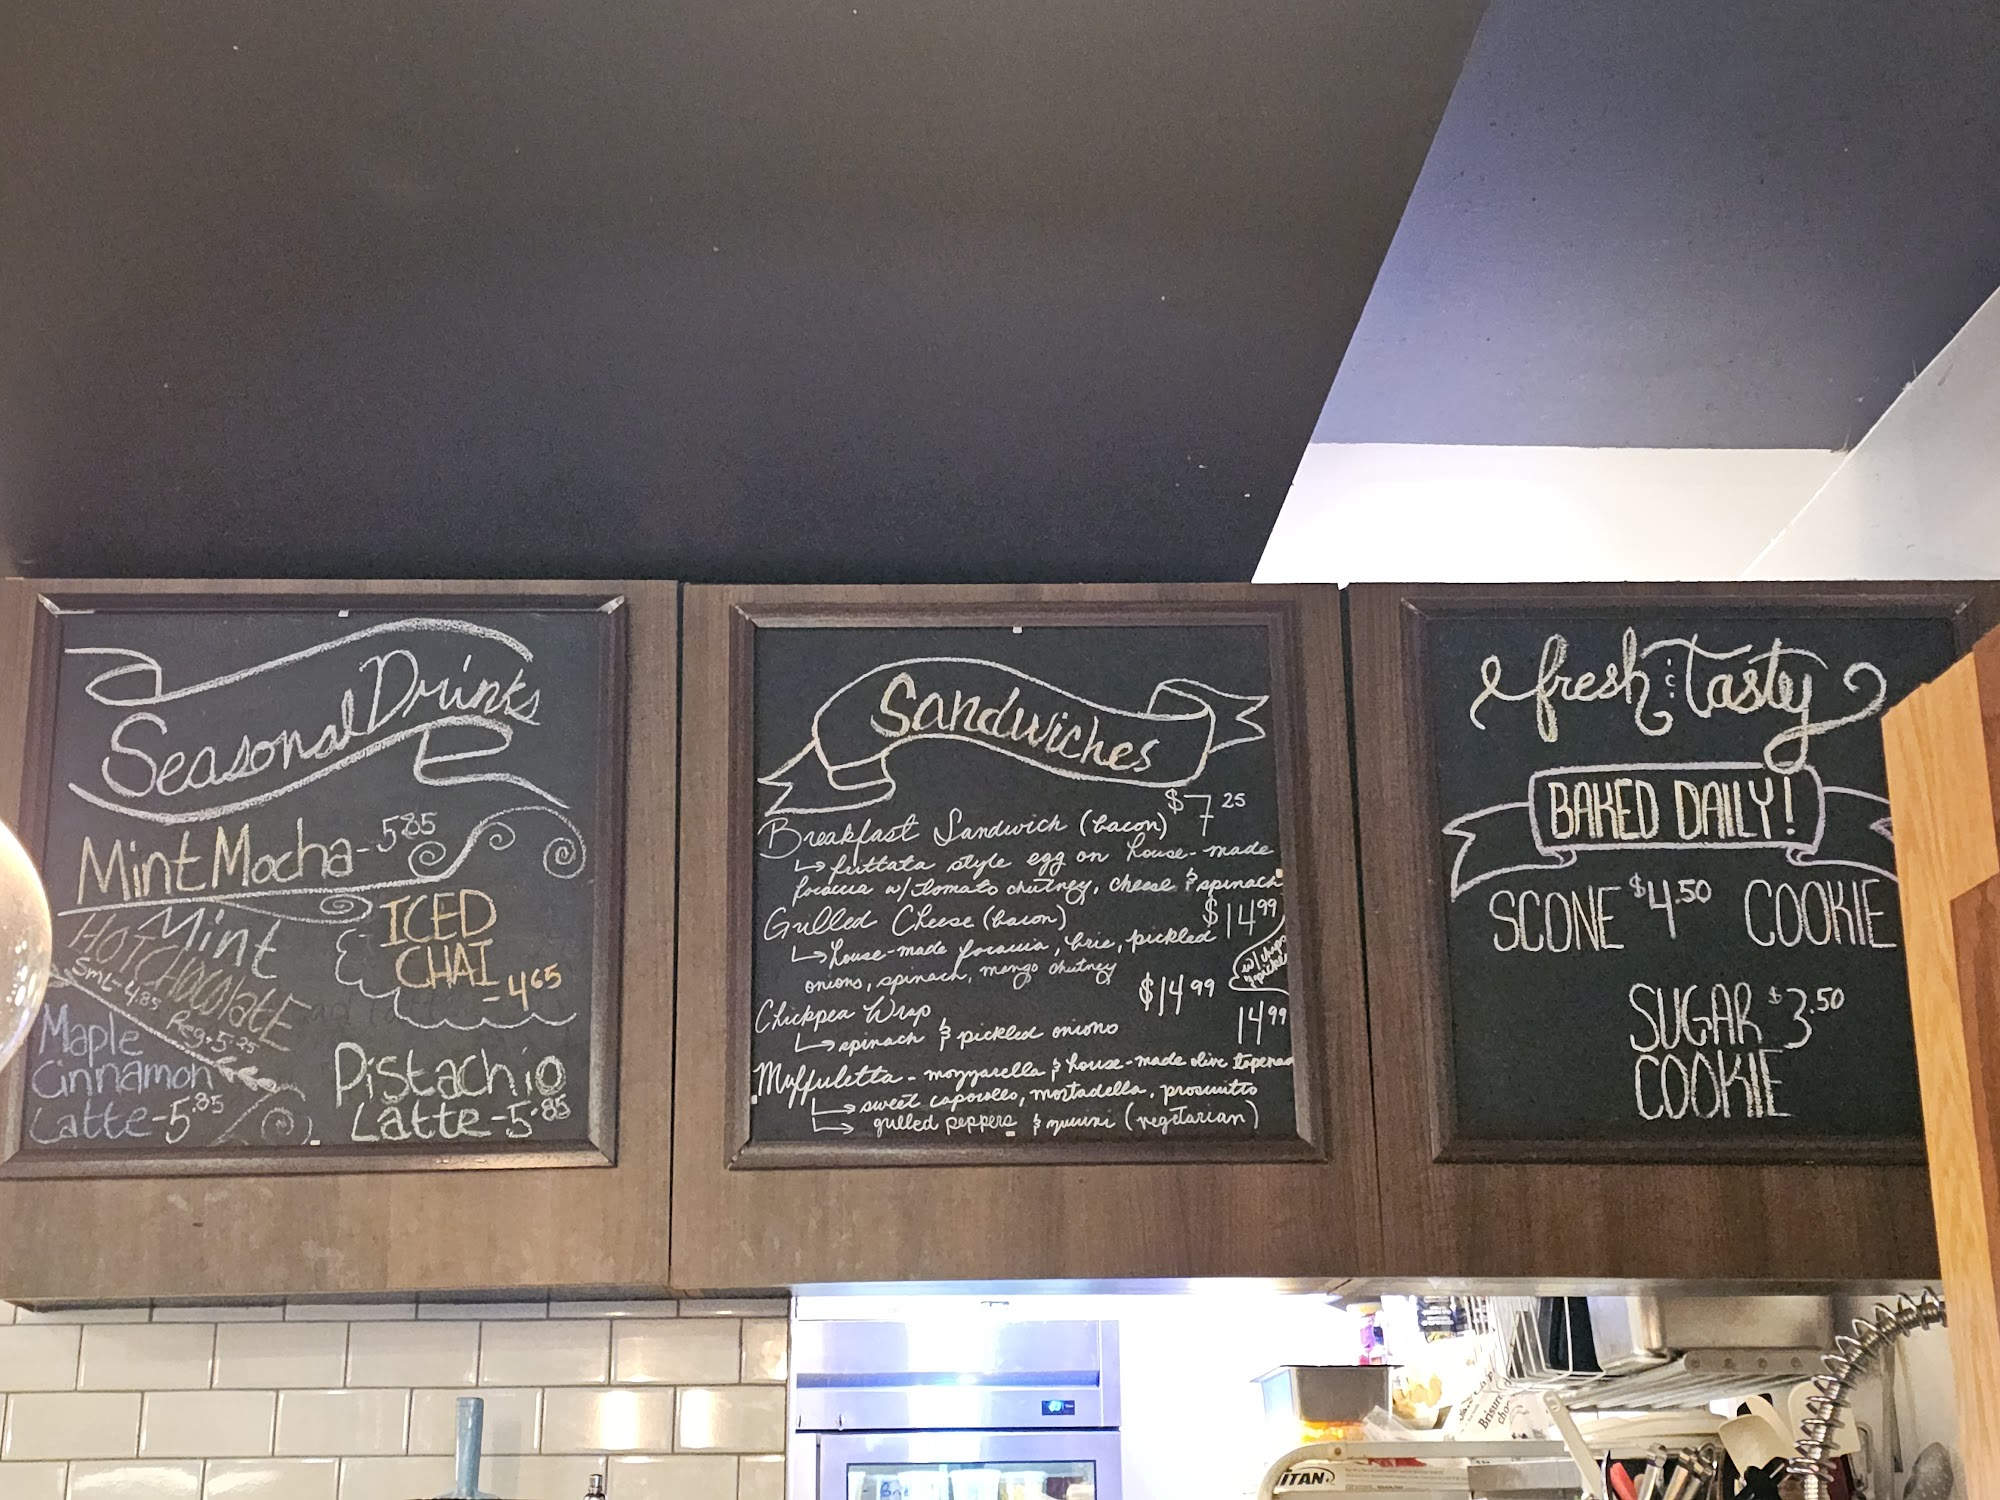 Seasonal Drinks
Mint Mocha - 5.85
Mint
HOT CHOCOLATE
Sml - 4.85 Reg - 5.25
ICED
CHAI
- 4.65
Maple
Cinnamon
Latte - 5.85
Pistachio
Latte - 5.85
Sandwiches
Breakfast Sandwich (bacon) $7.25
↳ frittata style egg on house-made
focaccia w/ tomato chutney, cheese & spinach
Grilled Cheese (bacon) $14.99
↳ house-made focaccia, brie, pickled
onions, spinach, mango chutney
w/ chips
& pickle
Chickpea Wrap $14.99
↳ spinach & pickled onions
14.99
Muffuletta - mozzarella & house-made olive tapenade
↳ sweet capocollo, mortadella, prosciutto
↳ grilled peppers & zucchini (vegetarian)
fresh & tasty
BAKED DAILY!
SCONE $4.50 COOKIE
SUGAR $3.50
COOKIE
TITAN